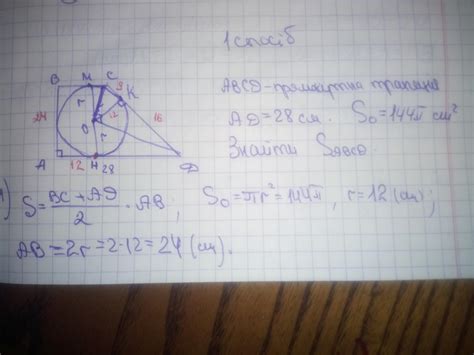 1 спосіб
B M C
9 K
r
24 O 12 16
r
A 12 H 28 D
ABCD - прямокутна трапеція
AD = 28 см. S₀ = 144π см²
Знайти S_ABCD.
S = (BC + AD)/2 · AB; S₀ = πr² = 144π, r = 12 (см);
AB = 2r = 2·12 = 24 (см).